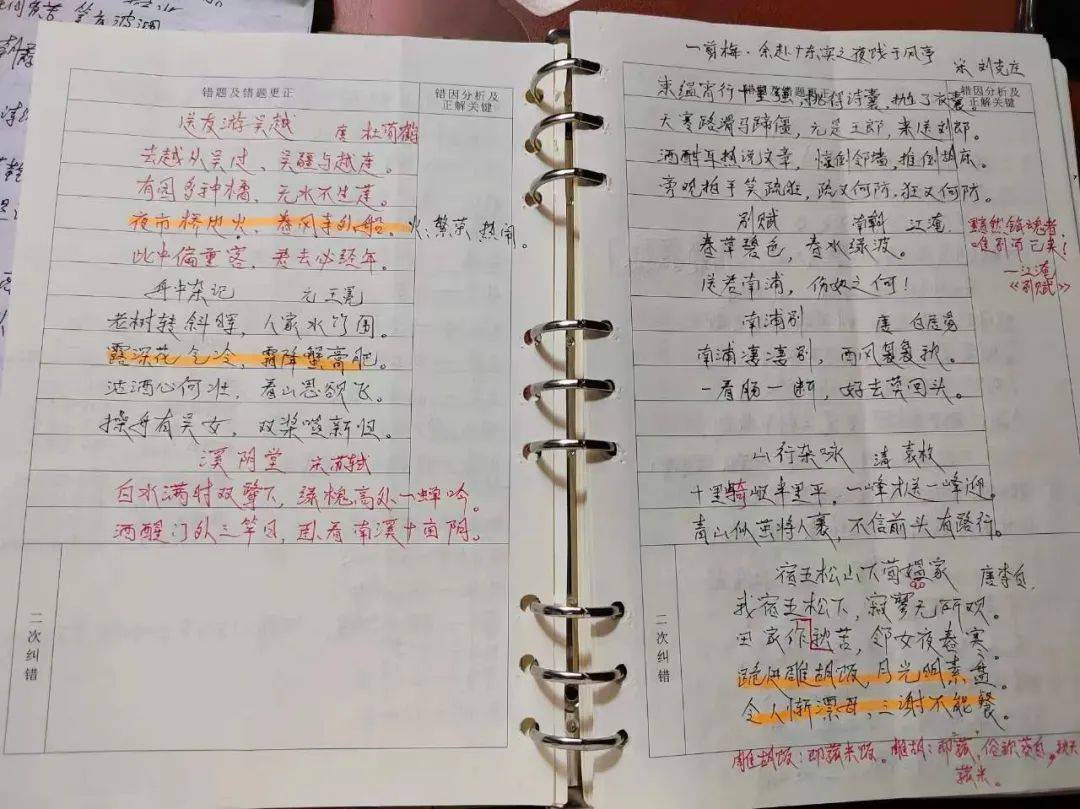 错题及错题更正
错因分析及
正解关键
送友游吴越 唐 杜荀鹤
去越从吴过、吴疆与越连。
有园多种橘、无水不生莲。
夜市桥边火、春风寺外船。
火:繁荣 热闹。
此中偏重客、君去必经年。
舟中杂记 元 王冕
老树转斜晖,人家水竹围。
露深花气冷,霜降蟹膏肥。
沽酒心何壮,看山思欲飞。
操舟有吴女,双桨唱新归。
溪阴堂 宋 苏轼
白水满时双鹭下,绿槐高处一蝉吟。
酒醒门外三竿日,卧看南溪十亩阴。
二次纠错
一剪梅·余赴广东实之夜饯于风亭
宋 刘克庄
错因分析及
正解关键
束缊宵行十里强,挑得诗囊,抛了衣囊。
天寒路滑马蹄僵,元是王郎,来送刘郎。
酒酣耳热说文章,惊倒邻墙,推倒胡床。
旁观拍手笑疏狂,疏又何防,狂又何防。
别赋 南朝 江淹
春草碧色,春水绿波。
送君南浦,伤如之何!
黯然销魂者
唯别而已矣!
—江淹
《别赋》
南浦别 唐 白居易
南浦凄凄别,西风袅袅秋。
一看肠一断,好去莫回头。
山行杂咏 清 袁枚
十里崎岖半里平,一峰才送一峰迎。
青山似茧将人裹,不信前头有路行。
二次纠错
宿五松山下荀媪家 唐 李白
我宿五松下,寂寥无所欢。
田家作秋苦,邻女夜舂寒。
跪进雕胡饭,月光明素盘。
令人惭漂母,三谢不能餐。
雕胡饭:即菰米饭。雕胡:即菰,俗称茭白,
菰米。